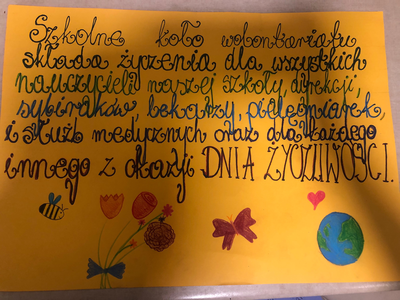 Szkolne koło wolontariatu
składa życzenia dla wszystkich
nauczycieli naszej szkoły, dyrekcji,
sybiraków, lekarzy, pielęgniarek,
i służb medycznych oraz dla każdego
innego z okazji DNIA ŻYCZLIWOŚCI.